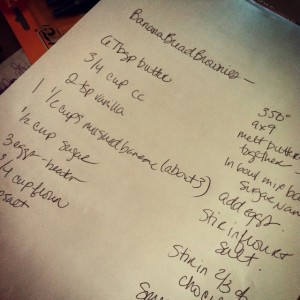 Banana Bread Brownies -
6 Tbsp butter
3/4 cup cc
2 tsp vanilla
1 1/2 cups mushed banana (about 3)
1/2 cup sugar
3 eggs - beaten
3/4 cup flour
salt
350°
9x9
melt butter
together -
in bowl mix ba
sugar van
add eggs.
Stir in flour &
salt.
Stir in 2/3 of
choc